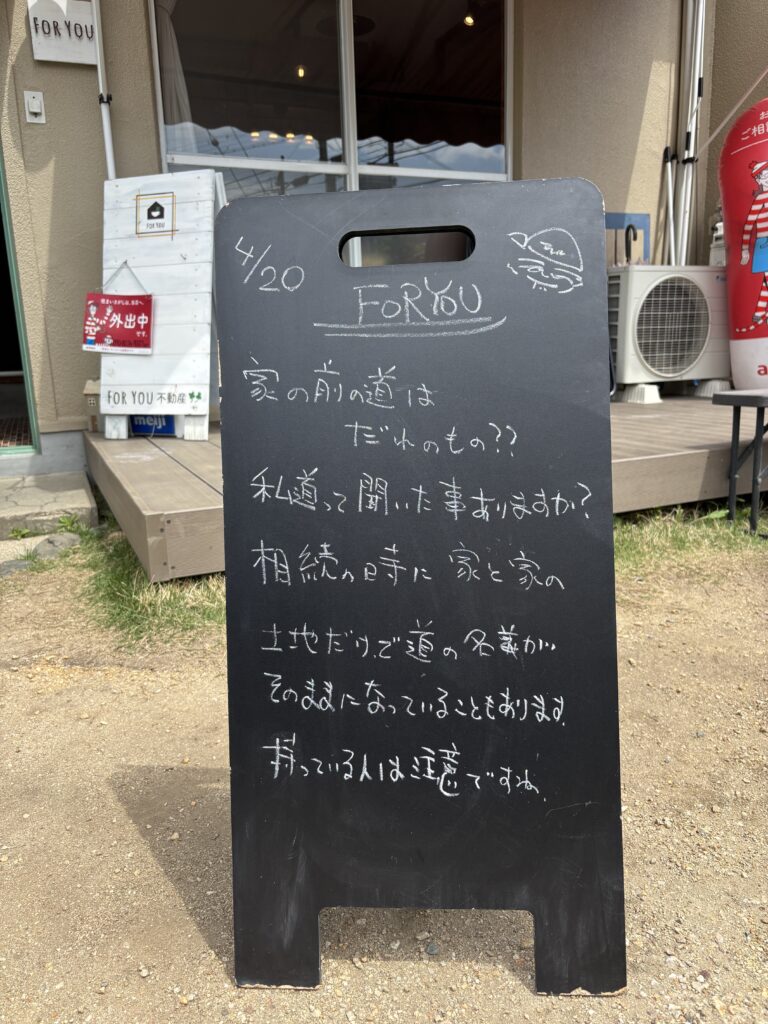 FOR YOU
FOR YOU
外出中
です。
FOR YOU 不動産
meiji
ご相
4/20
FOR YOU
家の前の道は
だれのもの??
私道って聞いた事ありますか?
相続の時に 家と家の
土地だけで道の名義が
そのままになっていることもあります。
持っている人は注意ですね。